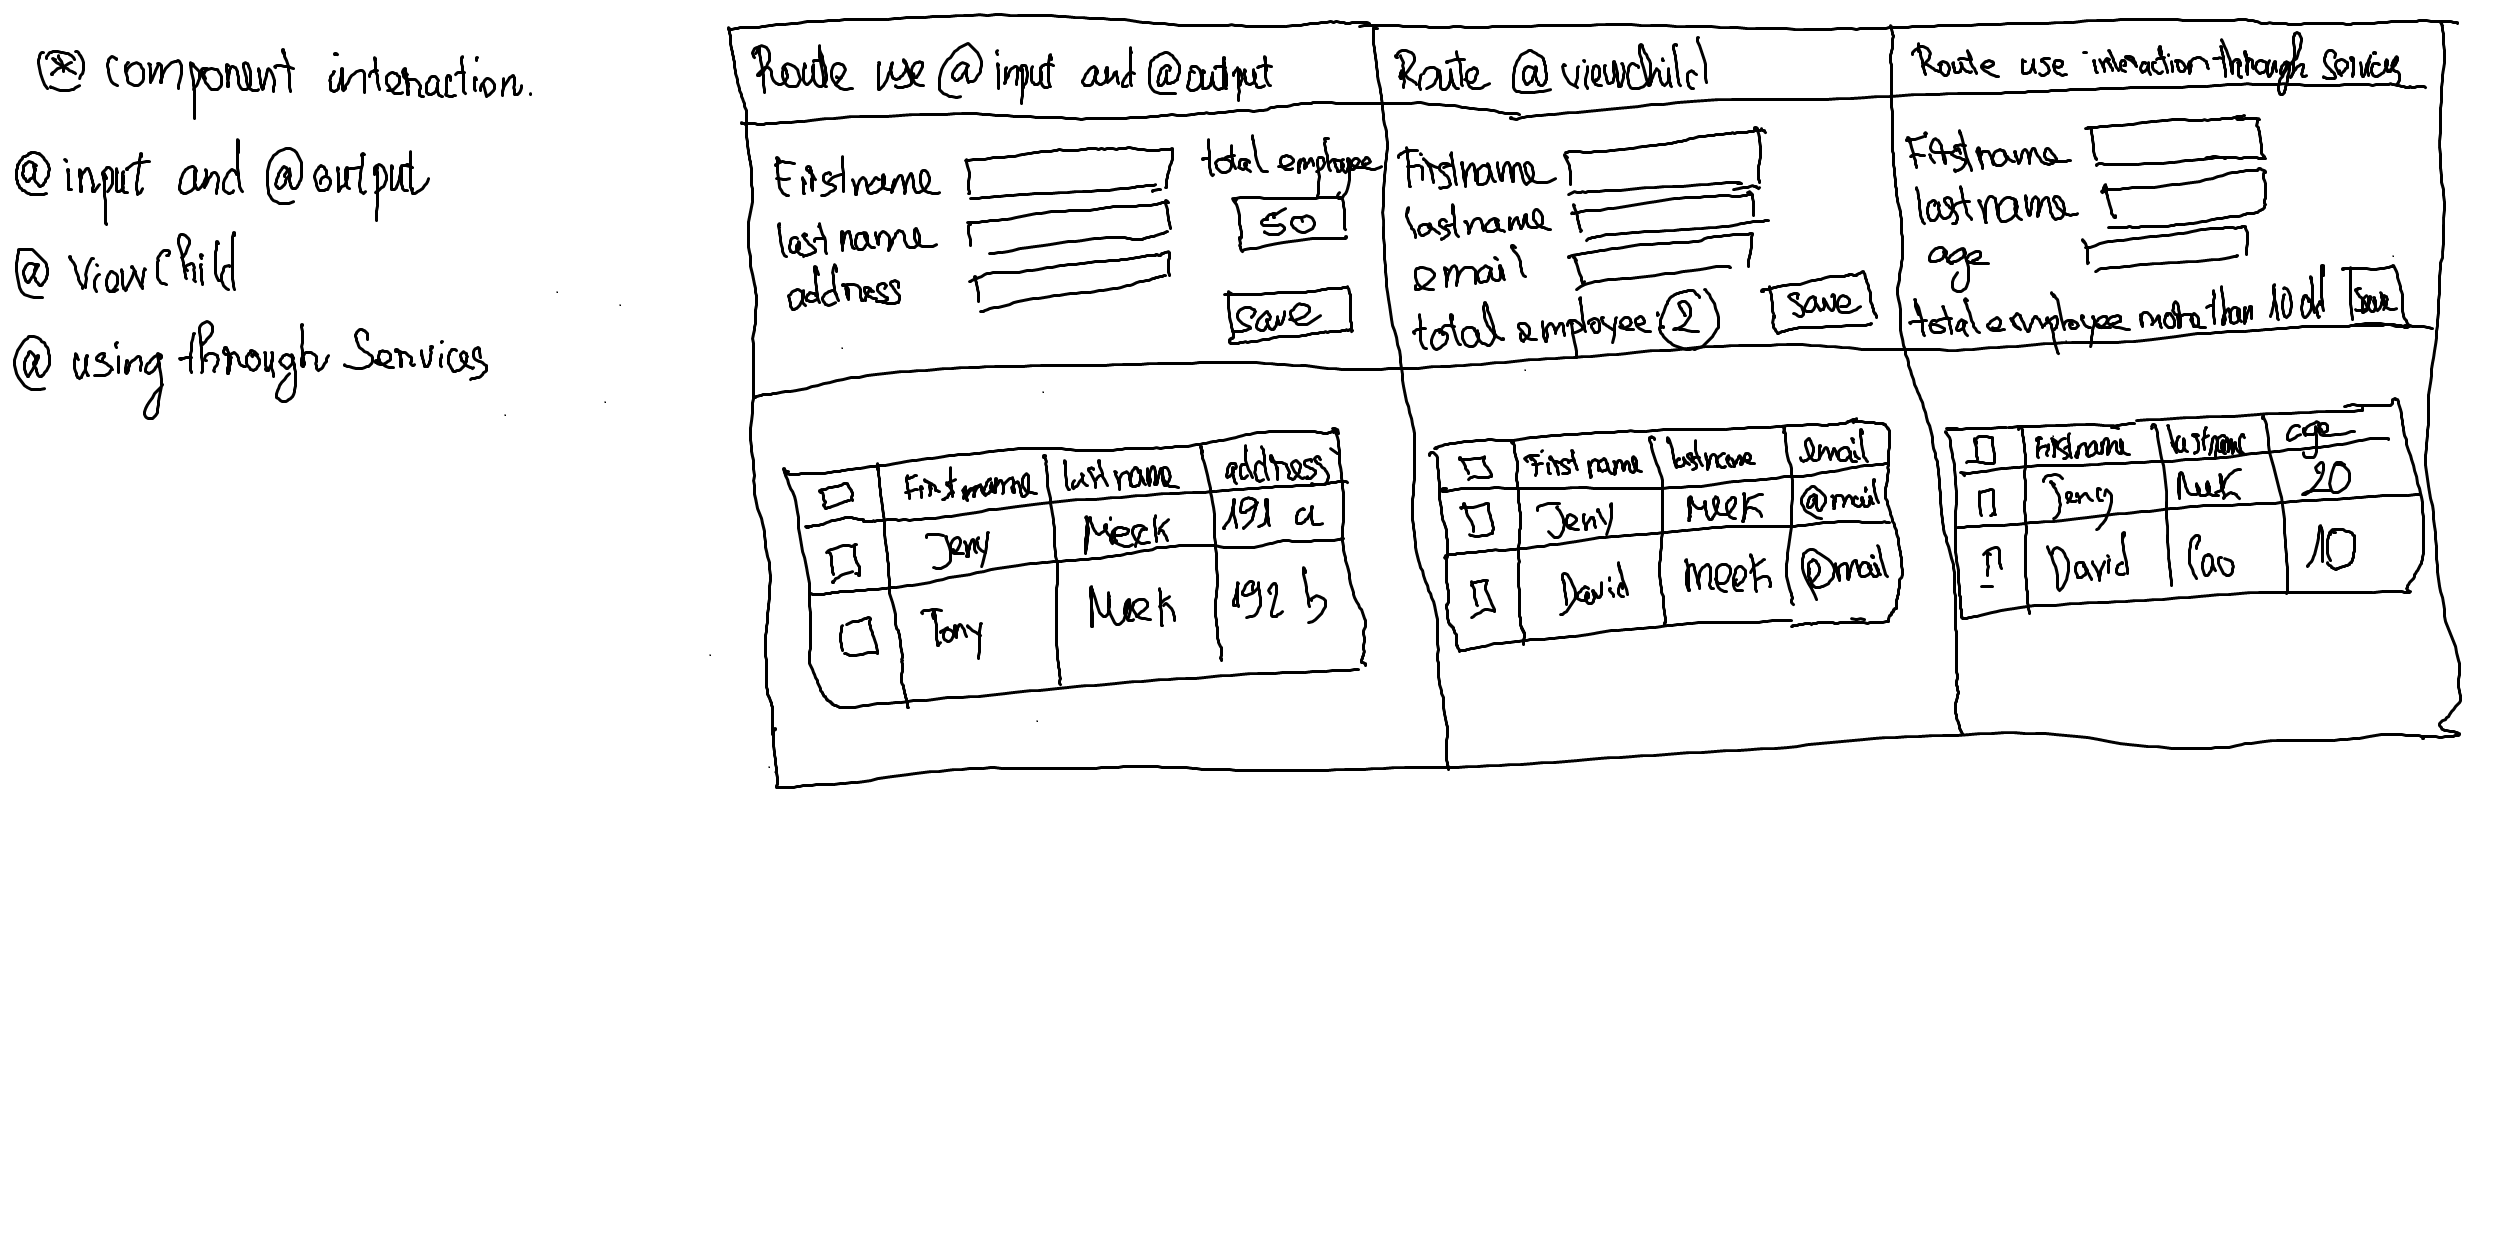 * component interaction.
@ input and @ output
@ ViewChild
@ using through Services
Route use @ input and @ output
Firstname
lastname
address
total employee
50
save
First name Lastname address
Jeny Meek 191 a
Tony Meek 192 b
Route @ viewchild
Firstname
lastname
email
total employee: 2
save
First name lastname email
Jeny Meek @mail
David Meek @mail
Route use interaction through Service
Firstname
lastname
age
total employee more than 10 old
save
Firstname lastname age
Jency Meek
David Cao 10